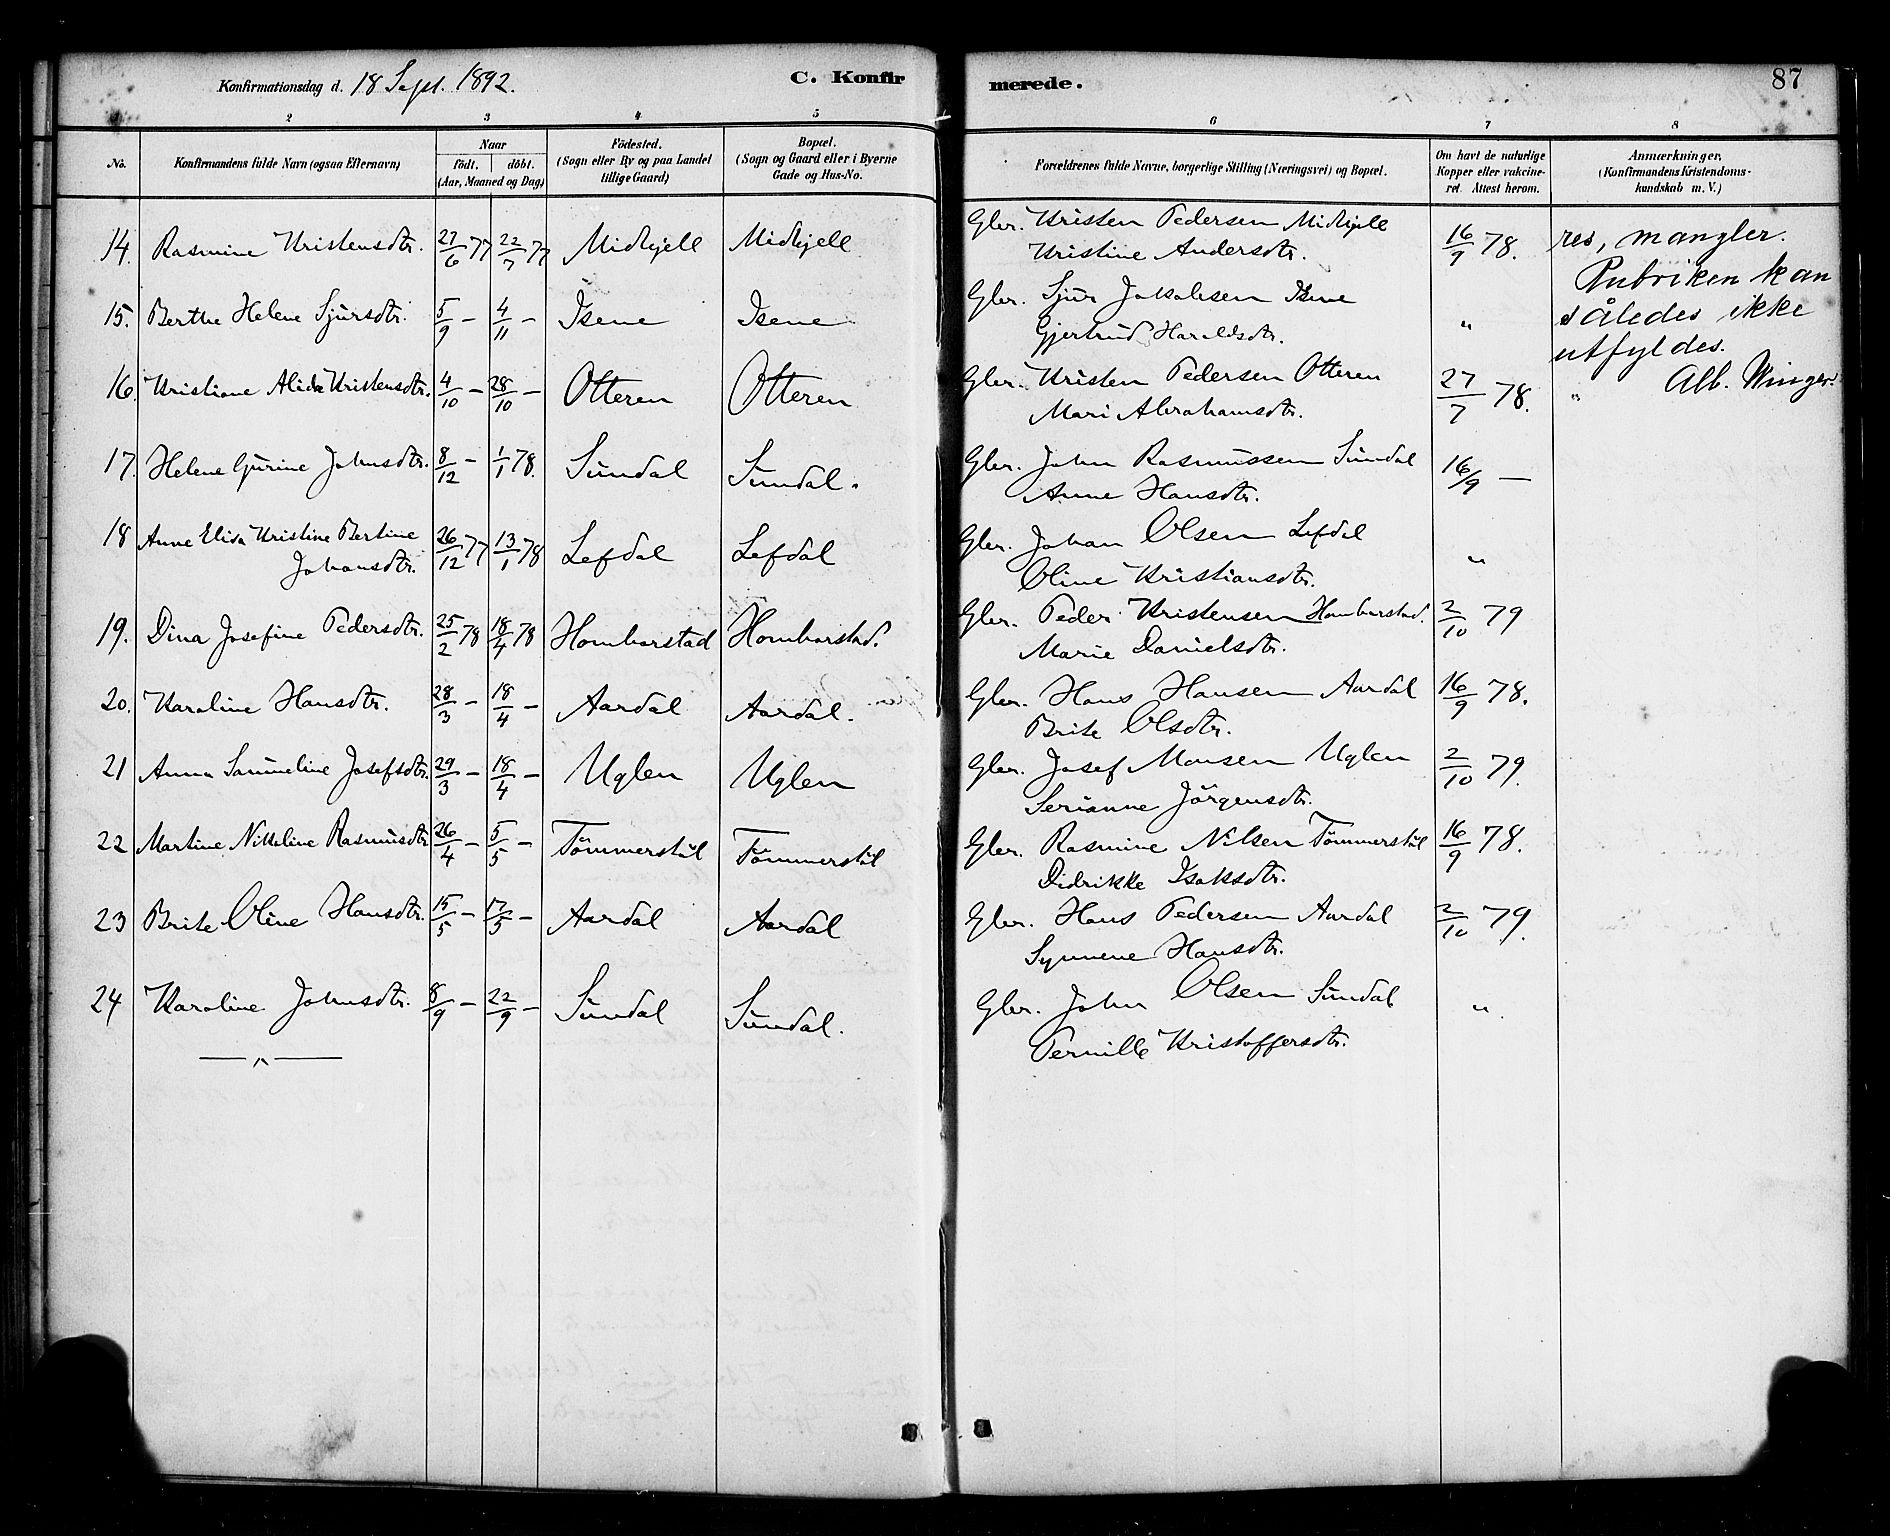 Konfirmationsdag d. 18 Sept. 1892.
C. Konfir merede.
87
1 2 3 4 5 6 7 8
No.
Konfirmandens fulde Navn (ogsaa Efternavn)
Naar
födt. döbt.
(Aar, Maaned og Dag)
Födested.
(Sogn eller By og paa Landet
tillige Gaard)
Bopæl.
(Sogn og Gaard eller i Byerne
Gade og Hus-No.
Forældrenes fulde Navne, borgerlige Stilling (Næringsvei) og Bopæl.
Om havt de naturlige
Kopper eller vakcine-
ret. Attest herom.
Anmærkninger,
(Konfirmandens Kristendoms-
kundskab m. V.)
14. Rasmine Kristensdtr. 27/6 77 22/7 77 Midhjell Midhjell Gbr. Kristen Pedersen Midhjell 16/9 78.
Kristine Andersdtr.
15. Berthe Helene Sjursdtr. 5/9 - 4/11 - Isene Isene Gbr. Sjur Jakobsen Isene "
Gjertrud Haraldsdtr.
16. Kristiane Alida Kristensdtr. 4/10 - 28/10 - Otteren Otteren Gbr. Kristen Pedersen Otteren 27/7 78. "
Mari Abrahamsdtr.
17. Helene Gurine Johnsdtr. 8/12 - 1/1 78. Sundal Sundal. Gbr. John Rasmussen Sundal 16/9 —
Anne Hansdtr.
18 Anne Elisa Kristine Bertine
Johansdtr. 26/12 77 13/1 78 Lefdal Lefdal Gbr. Johan Olsen Lefdal "
Oline Kristiansdtr.
19. Dina Josefine Pedersdtr. 25/2 78 18/4 78 Hombarstad Hombarstad. Gbr. Peder Kristensen Hombarstad. 2/10 79
Marie Danielsdtr.
20. Karoline Hansdtr. 28/3 - 18/4 - Aardal Aardal. Gbr. Hans Hansen Aardal 16/9 78.
Brite Olsdtr.
21 Anna Samueline Josefsdtr. 29/3 - 18/4 - Uglen Uglen Gbr. Josef Monsen Uglen 2/10 79.
Serianne Jörgensdtr.
22 Martine Nikoline Rasmusdtr 26/4 - 5/5 - Tömmerstöl Tömmerstöl Gbr. Rasmine Nilsen Tömmerstöl 16/9 78.
Didrikke Isaksdtr.
23 Brite Oline Hansdtr. 15/5 - 17/5 - Aardal Aardal Gbr. Hans Pedersen Aardal 2/10 79.
Synnene Hansdtr.
24 Karoline Johnsdtr. 8/9 - 22/9 - Sundal Sundal. Gbr. John Olsen Sundal "
Pernille Kristoffersdtr.
res, mangler.
Rubriken kan
således ikke
utfyldes.
Alb. Winger.